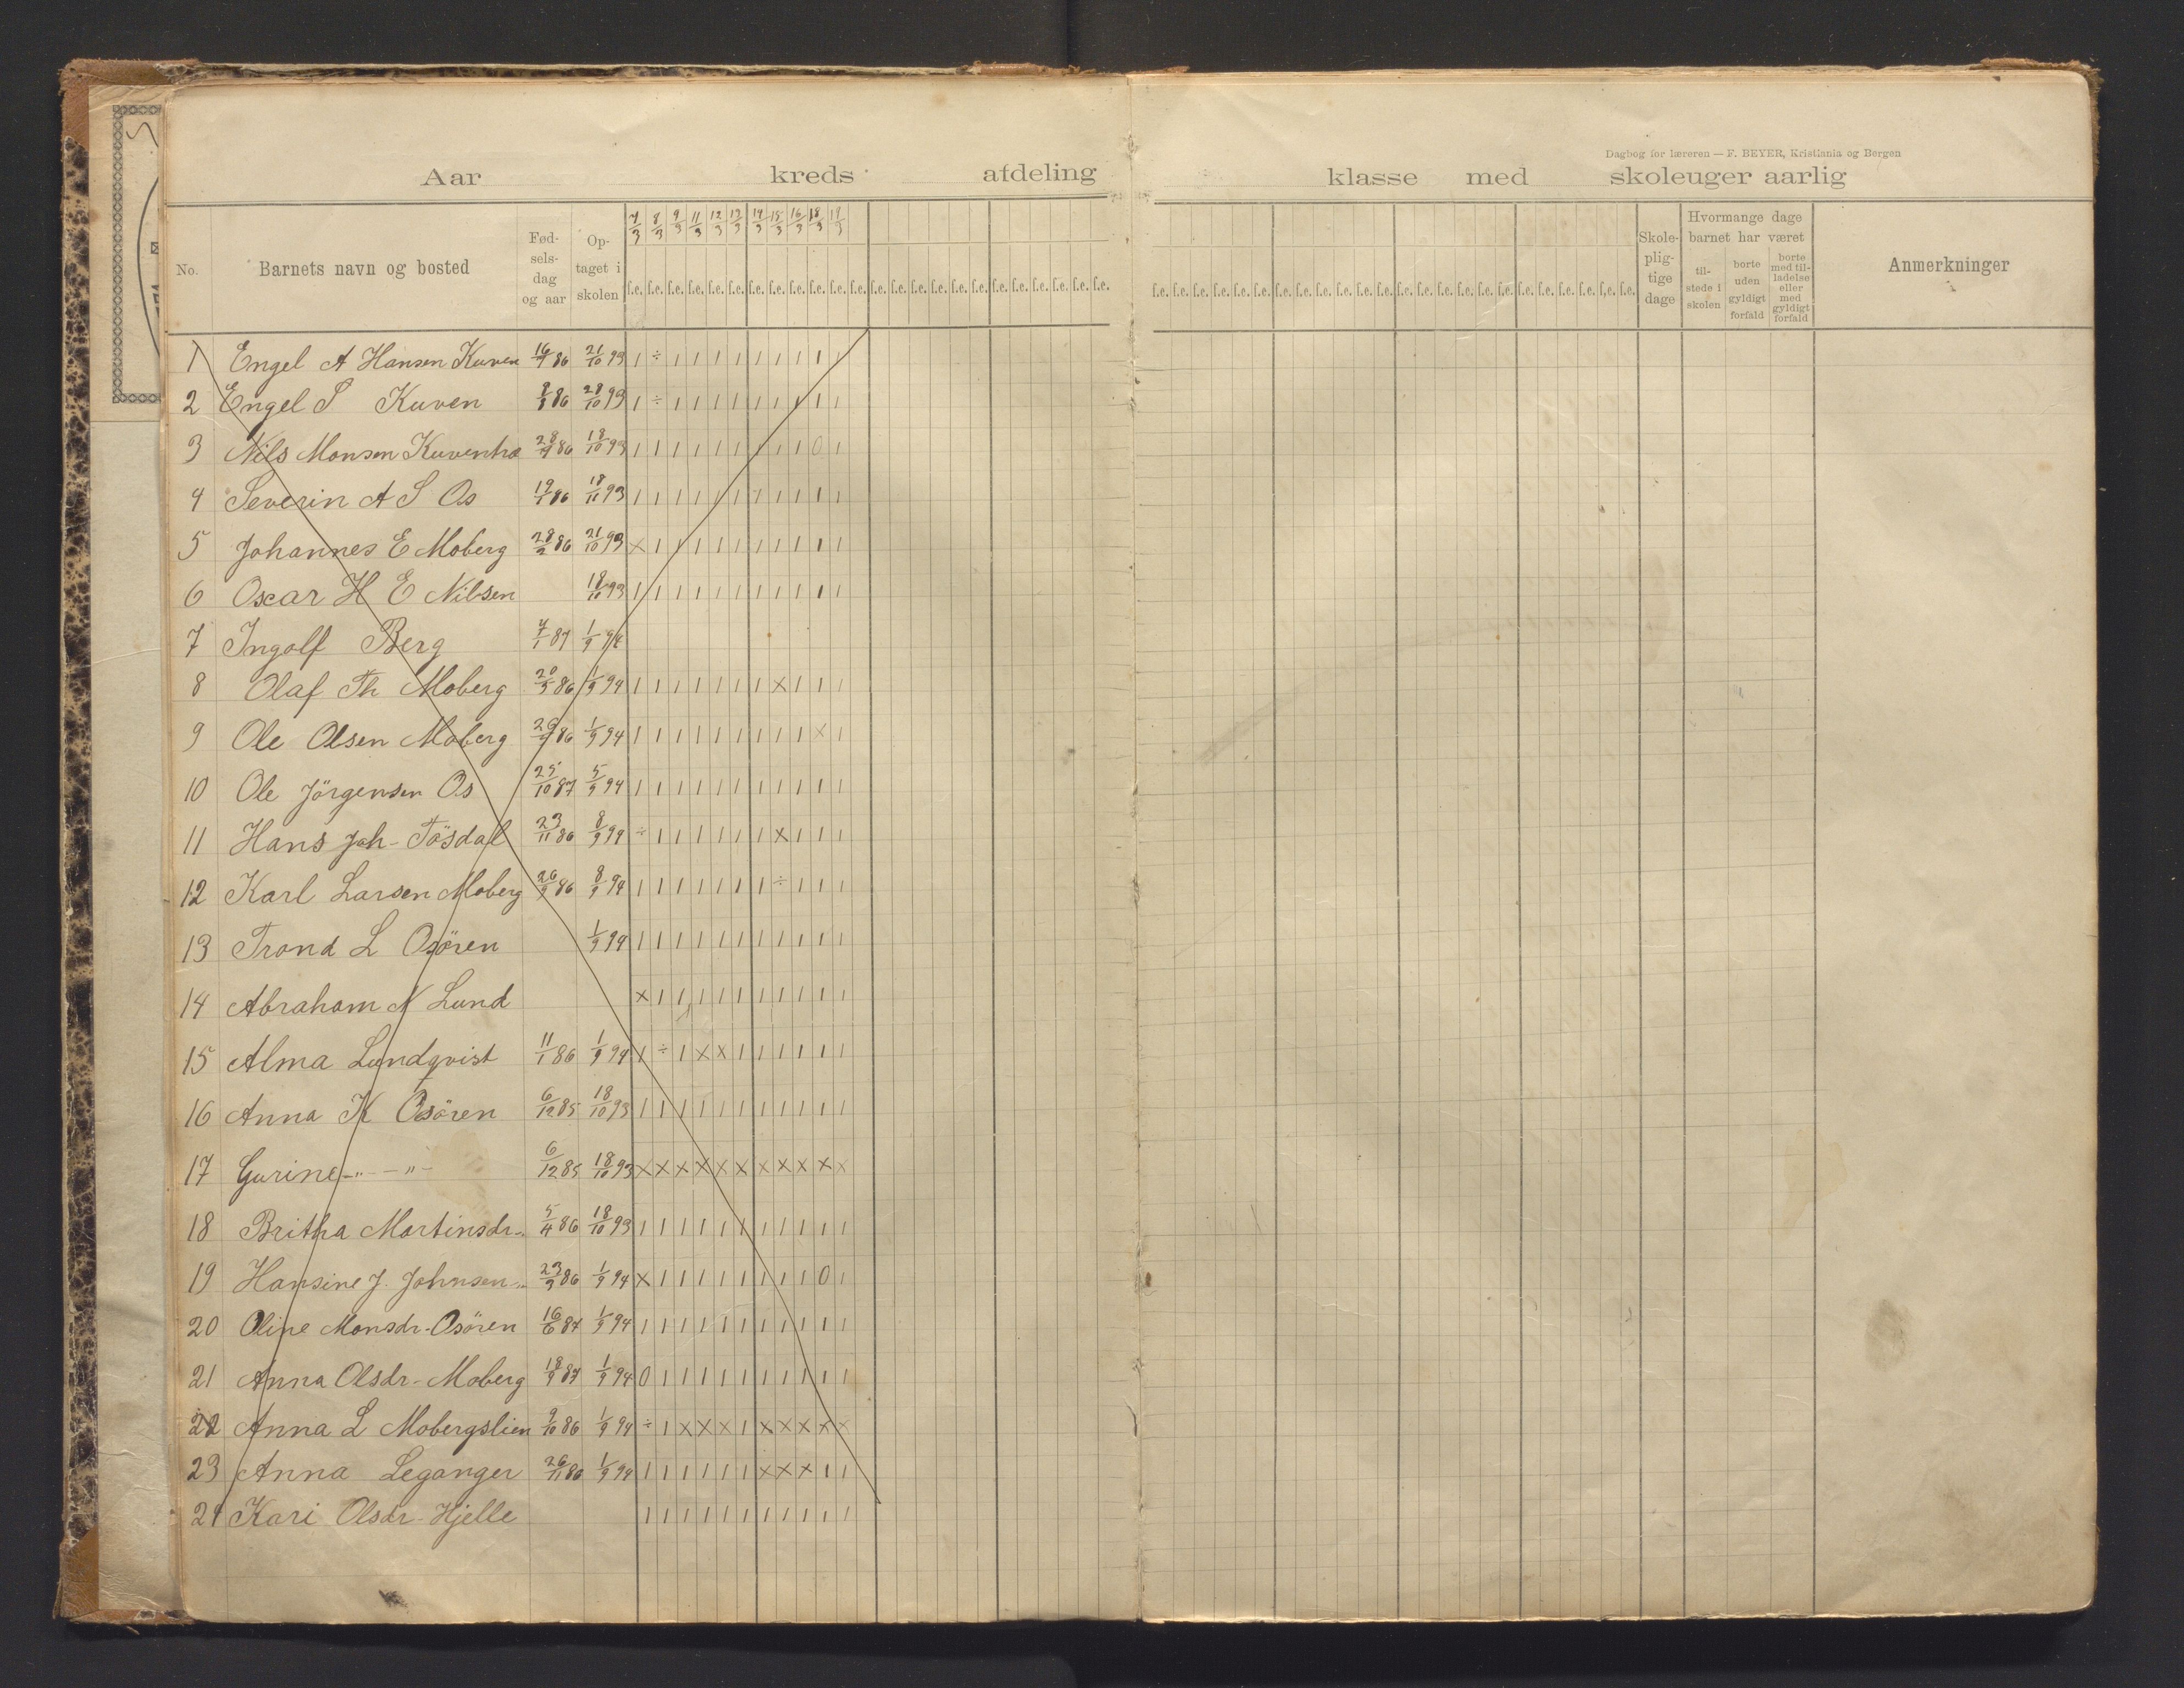 Dagbog for læreren — F. BEYER, Kristiania og Bergen
Aar kreds afdeling klasse med skoleuger aarlig
No. Barnets navn og bosted Fødselsdag og aar Optaget i skolen 7/3 8/3 9/3 11/3 12/3 13/3 14/3 15/3 16/3 18/3 19/3 Skolepligtige dage Hvormange dage barnet har været tilstede i skolen borte uden gyldigt forfald borte med tilladelse eller med gyldigt forfald Anmerkninger
f.e. f.e. f.e. f.e. f.e. f.e. f.e. f.e. f.e. f.e. f.e. f.e. f.e. f.e. f.e. f.e. f.e. f.e. f.e. f.e. f.e. f.e. f.e. f.e.
f.e. f.e. f.e. f.e. f.e. f.e. f.e. f.e. f.e. f.e. f.e. f.e. f.e. f.e. f.e. f.e. f.e. f.e. f.e. f.e. f.e. f.e. f.e. f.e.
1 Engel A Hansen Kuven 86 21/10 93 1 ÷ 1 1 1 1 1 1 1 1 1
2 Engel S Kuven 86 28/10 93 1 ÷ 1 1 1 1 1 1 1 1 1
3 Nils Monsen 86 18/10 93 1 1 1 1 1 1 1 1 1 0 1
4 Severin A S Os 86 18/11 93 1 1 1 1 1 1 1 1 1 1 1
5 Johannes E Moberg 28/2 86 21/10 93 × 1 1 1 1 1 1 1 1 1 1
6 Oscar H E Nilsen 93 1 1 1 1 1 1 1 1 1 1 1
7 Ingolf Berg 87 1/9 94
8 Olaf Th Moberg 86 1/9 94 1 1 1 1 1 1 1 × 1 1 1
9 Ole Olsen Moberg 86 1/9 94 1 1 1 1 1 1 1 1 1 × 1
10 Ole Jörgensen Os 25/10 87 5/9 94 1 1 1 1 1 1 1 1 1 1 1
11 Hans Joh- Tösdal 23/11 86 8/9 94 ÷ 1 1 1 1 1 1 × 1 1 1
12 Karl Larsen Moberg 26/9 86 8/9 94 1 1 1 1 1 1 1 ÷ 1 1 1
13 Trond L Osören 1/9 94 1 1 1 1 1 1 1 1 1 1 1
14 Abraham N Lund × 1 1 1 1 1 1 1 1 1 1
15 Alma Lundqvist 11/1 86 1/9 94 1 ÷ 1 × × 1 1 1 1 1 1
16 Anna K Osören 6/12 85 18/10 93 1 1 1 1 1 1 1 1 1 1 1
17 Gurine -"- -"- 6/12 85 18/10 93 × × × × × × × × × × ×
18 Britha Martinsdr- 5/4 86 18/10 93 1 1 1 1 1 1 1 1 1 1 1
19 Hansine J. Johnsen 86 1/9 94 × 1 1 1 1 1 1 1 1 0 1
20 Oline Monsdr- Osören 16/6 87 1/9 94 1 1 1 1 1 1 1 1 1 1 1
21 Anna Olsdr- Moberg 18/9 87 1/9 94 0 1 1 1 1 1 1 1 1 1 1
22 Anna L Mobergslien 9/10 86 1/9 94 ÷ 1 × × × 1 × × × × ×
23 Anna Leganger 26/11 86 1/9 94 1 1 1 1 1 1 × × × 1 1
24 Kari Olsdr- Hjelle 1 1 1 1 1 1 1 1 1 1 1